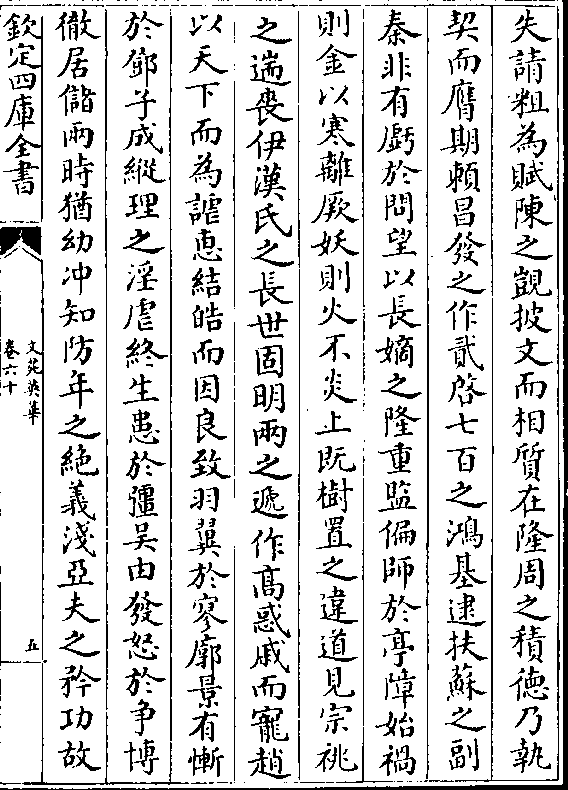 失請粗為賦陳之覬披文而相質在隆周之積德乃執
契而膺期頼昌發之作貳啓七百之鴻基逮扶蘇之副
秦非有虧於問望以長嫡之隆重監偏師於亭障始禍
則金以寒離厥妖則火不炎上既樹置之違道見宗祧
之遄喪伊漢氏之長世固明兩之遞作髙惑戚而寵趙
以天下而為謔恵結皓而因良致羽翼於寥廓景有慚
於鄧子成縱理之淫虐終生患於彊吴由發怒於争博
徹居儲兩時猶幼冲知防年之絶義淺亞夫之矜功故
欽定四庫全書
文苑英華
卷六十
五